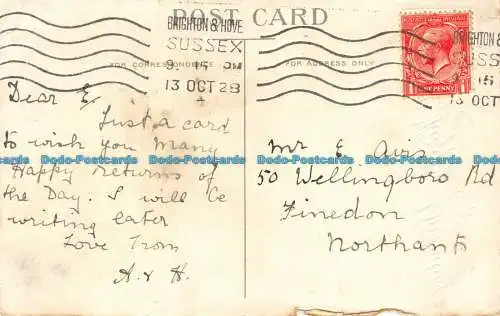 POST CARD
BRIGHTON & HOVE
SUSSEX
9. 15 PM
13 OCT 28
BRIGHTON &
SSEX
15
13 OCT
ONE PENNY
FOR CORRESPONDENCE
FOR ADDRESS ONLY
Dear E,
Just a card
to wish you Many
Happy Returns of
the Day. I will be
writing later
Love From
A & H.
Mr E Avis
50 Wellingboro Rd
Finedon
Northants
Dodo-Postcards Dodo-Postcards Dodo-Postcards Dodo-Postcards Dodo-Postcards